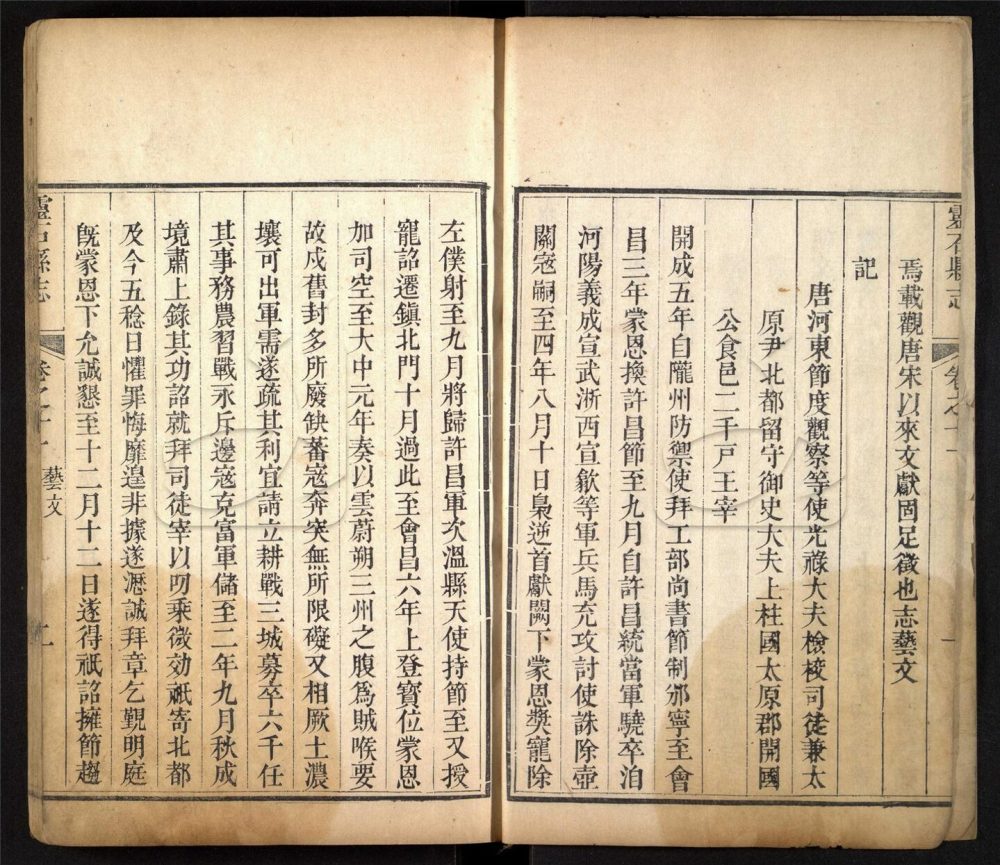 靈石縣志
卷之十一
一
焉載觀唐宋以來文獻固足徵也志藝文
記
唐河東節度觀察等使光祿大夫檢校司徒兼太
原尹北都留守御史大夫上柱國太原郡開國
公食邑二千戸王宰
開成五年自隴州防禦使拜工部尚書節制邠寧至會
昌三年蒙恩換許昌節至九月自許昌統當軍驍卒洎
河陽義成宣武浙西宣歙等軍兵馬充攻討使誅除壺
關寇嗣至四年八月十日梟逆首獻闕下蒙恩奬寵除
左僕射至九月將歸許昌軍次溫縣天使持節至又授
寵詔遷鎮北門十月過此至會昌六年上登寶位蒙恩
加司空至大中元年奏以雲蔚朔三州之腹爲賊喉要
故戍舊封多所廢缺蕃寇奔突無所限礙又相厥土濃
壤可出軍需遂疏其利宜請立耕戰三城募卒六千任
其事務農習戰永斥邊寇克富軍儲至二年九月秋成
境肅上錄其功詔就拜司徒宰以叨乘微効祇寄北都
及今五稔日懼罪悔靡遑非據遂瀝誠拜章乞覲明庭
旣蒙恩下允誠懇至十二月十二日遂得祇詔擁節趨
靈石縣志
卷之十一
藝文
二